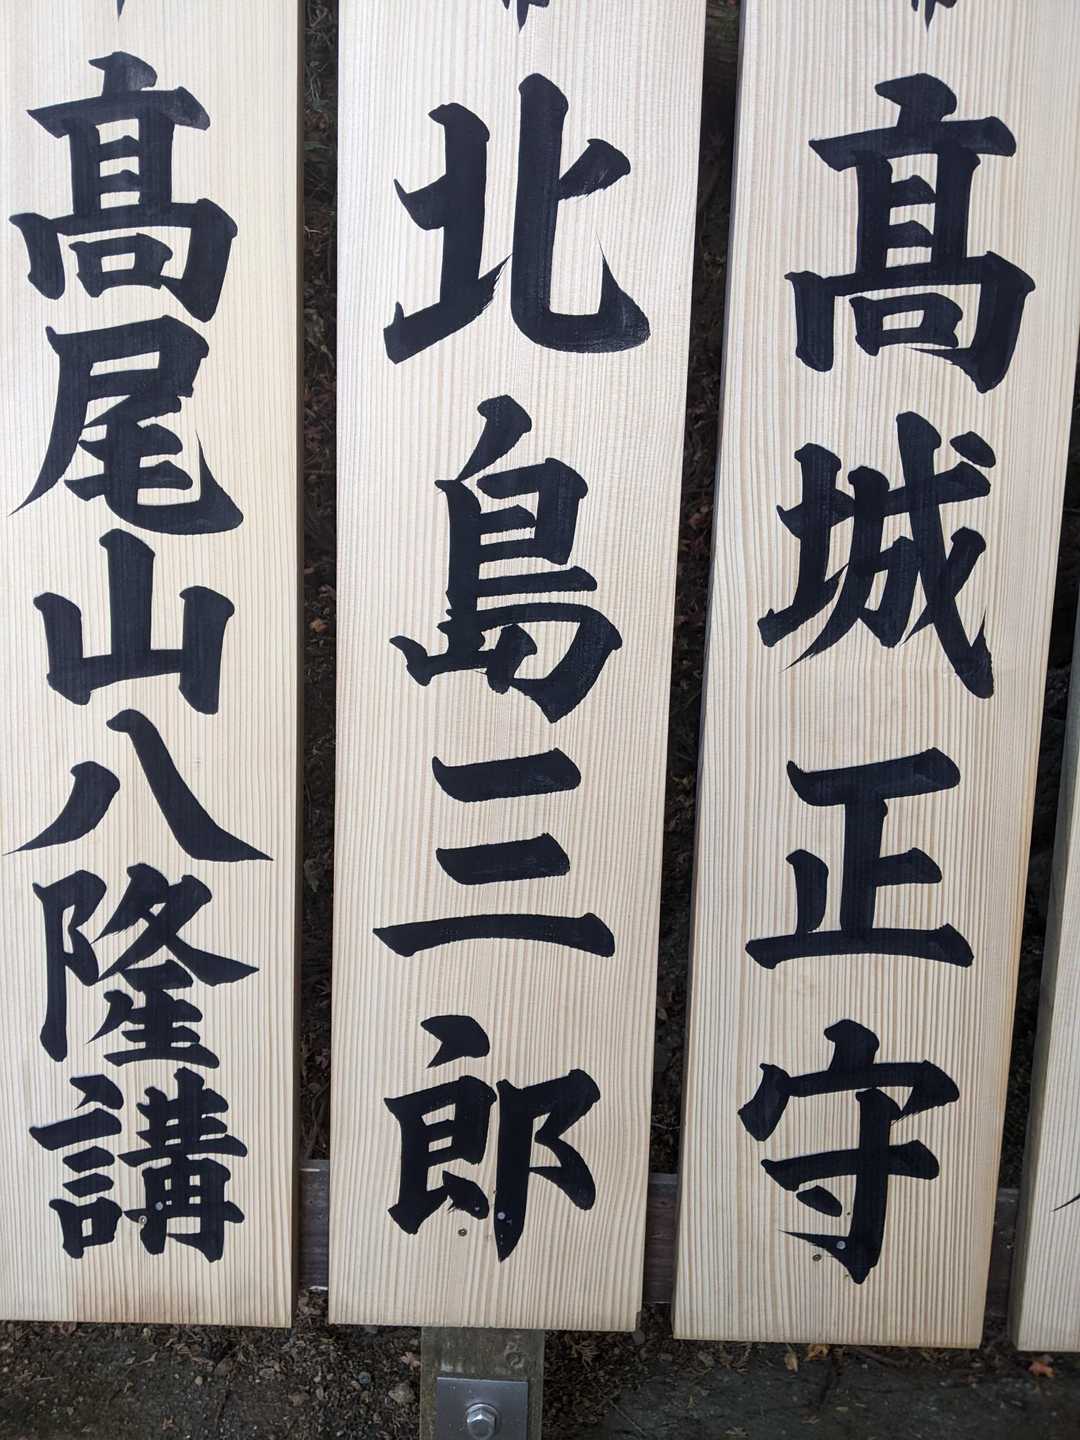 髙城正守
北島三郎
髙尾山八隆講